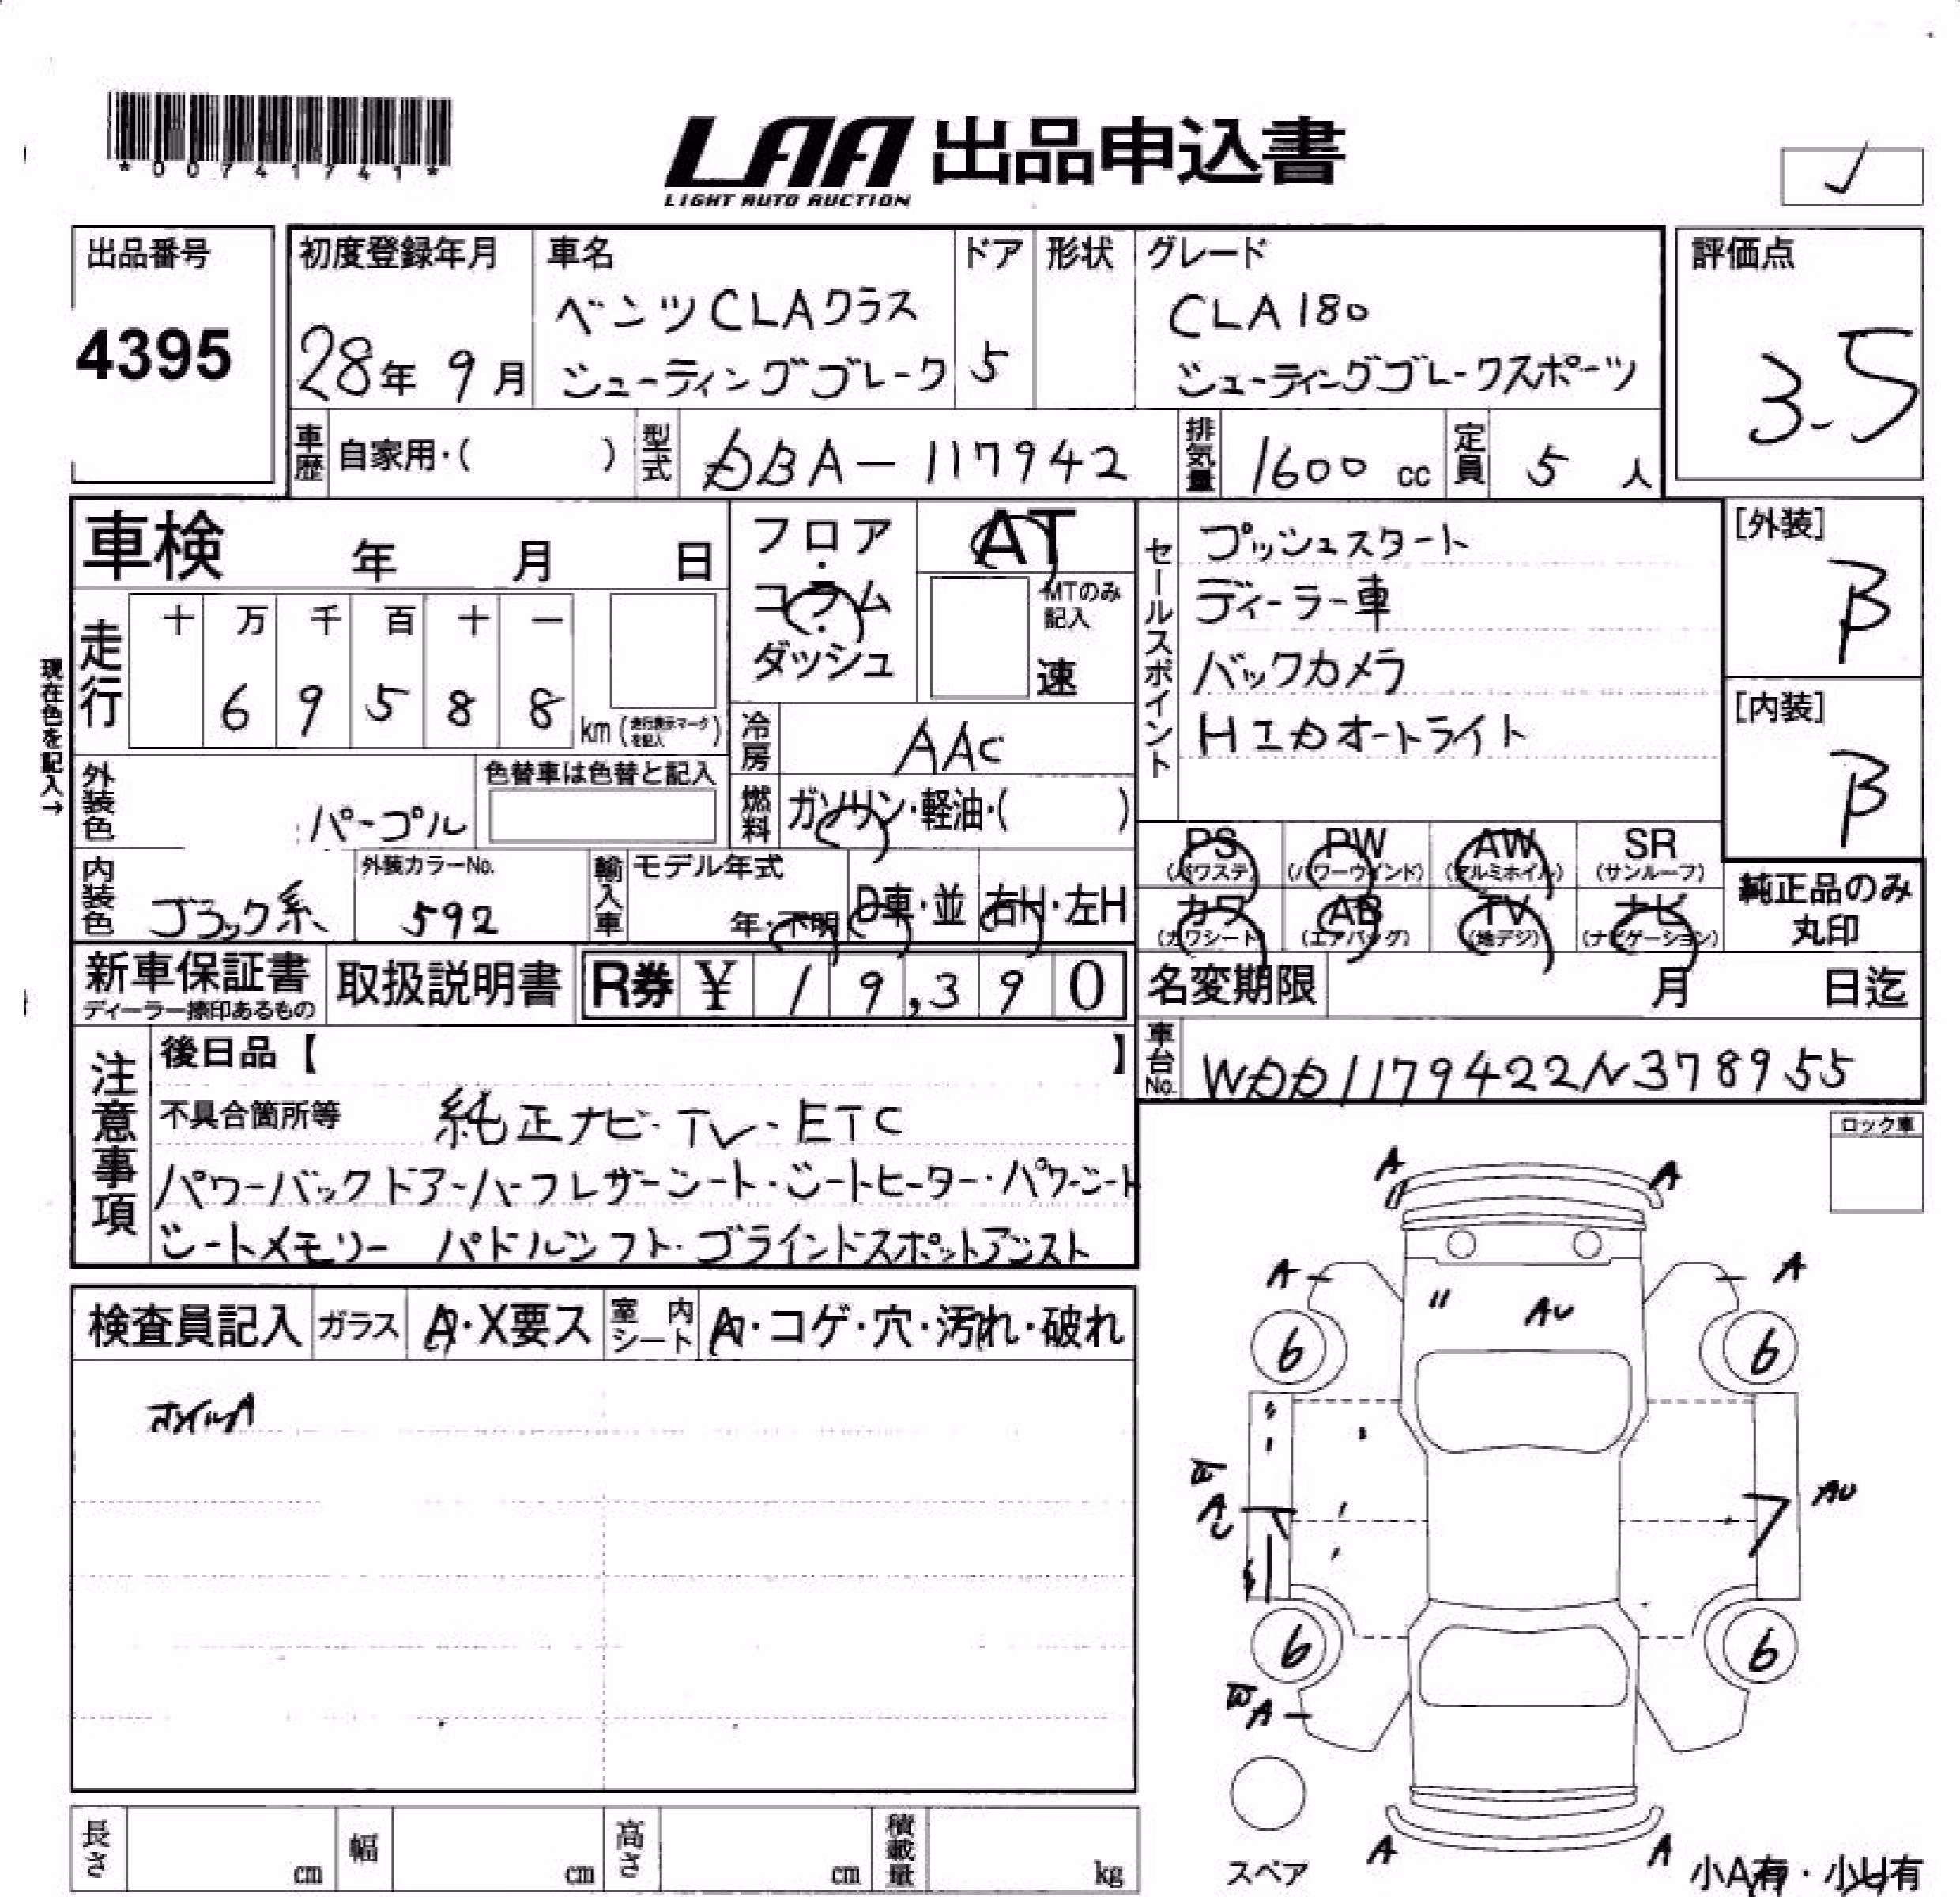 *00741741*
LAA 出品申込書
LIGHT AUTO AUCTION
出品番号
4395
初度登録年月
28年 9月
車名
ベンツCLAクラス
シューティングブレーク
ドア
5
形状
グレード
CLA180
シューティングブレークスポーツ
評価点
3.5
車歴 自家用・( )
型式 DBA-117942
排気量 1600 cc
定員 5 人
車検 年 月 日
現在色を記入→
走行
十 万 千 百 十 一
6 9 5 8 8
km (走行表示マークを記入)
フロア・コラム・ダッシュ
AT
MTのみ記入
速
冷房 AAC
燃料 ガソリン・軽油・( )
外装色 パープル
色替車は色替と記入
内装色 ブラック系
外装カラーNo.
592
輸入車 モデル年式
年・不明
D車・並
右H・左H
セールスポイント
プッシュスタート
ディーラー車
バックカメラ
HIDオートライト
[外装]
B
[内装]
B
PS (パワステ)
PW (パワーウインド)
AW (アルミホイル)
SR (サンルーフ)
カワ (カワシート)
AB (エアバッグ)
TV (地デジ)
ナビ (ナビゲーション)
純正品のみ
丸印
新車保証書
ディーラー捺印あるもの
取扱説明書
R券 ¥ 1 9,3 9 0
名変期限 月 日迄
車台No. WDD1179422N378955
注意事項
後日品【 】
不具合箇所等 純正ナビ・TV・ETC
パワーバックドア・ハーフレザーシート・シートヒーター・パワーシート
シートメモリー パドルシフト・ブラインドスポットアシスト
検査員記入 ガラス A・X要ス
室内シート A・コゲ・穴・汚れ・破れ
ホイルA
ロック車
A A
A A
AU
6 6
AU
6 6
W A
A A
スペア
小A有・小U有
長さ cm
幅 cm
高さ cm
積載量 kg